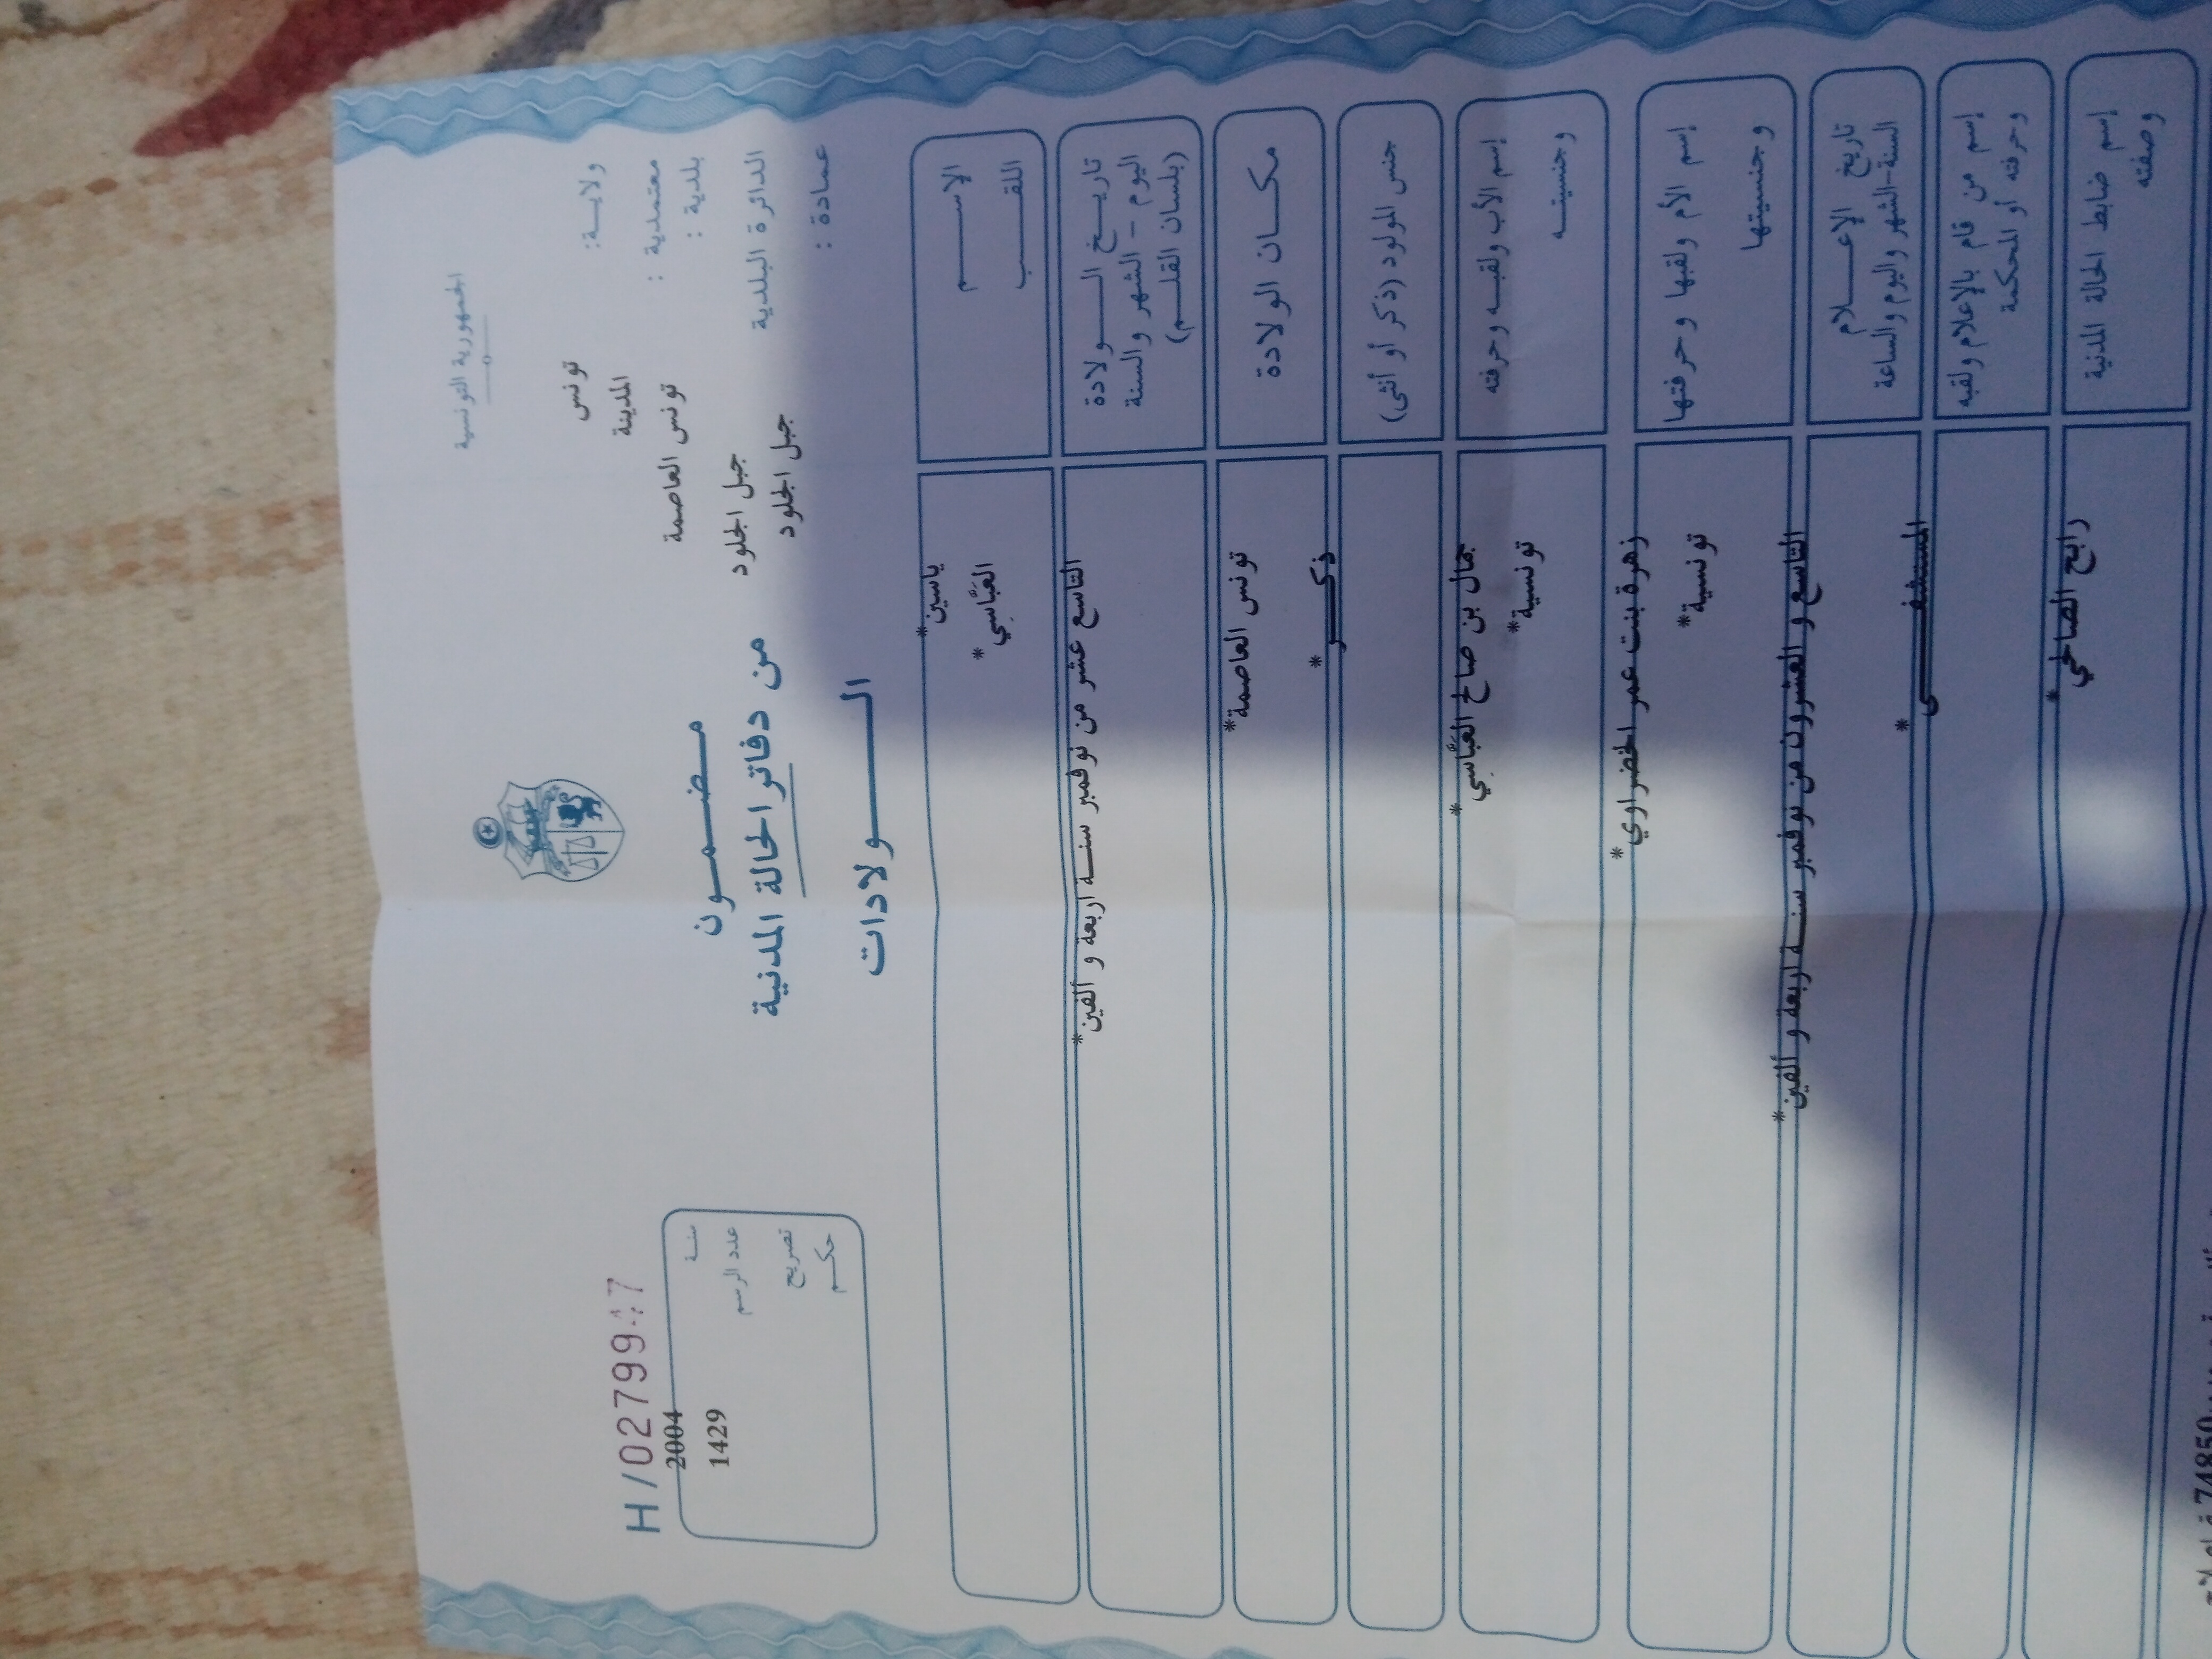 الجمهورية التونسية
ولايــة: تونس
معتمدية : المدينة
بلدية : تونس العاصمة
الدائرة البلدية جبل الجلود
عمادة : جبل الجلود
مـضـمــون
من دفاتر الحالة المدنية
الــولادات
H/02799 7
سنة 2004
عدد الرسم 1429
تصريح
حكم
الاســـم ياسين*
اللقــب العَبَّاسِي*
تاريـخ الــولادة
اليوم - الشهر والسنة
(بلسان القلـم)
التاسع عشر من نوفمبر سنـة اربعة و ألفين*
مكــان الولادة تونس العاصمة*
جنس المولود (ذكر أو أنثى) ذكــر*
إسم الأب ولقبـه وحرفته جمال بن صالح العَبَّاسِي*
وجنسيتـه تونسية*
إسم الأم ولقبها وحرفتها زهرة بنت عمر الخضراوي*
وجنسيتها تونسية*
تاريخ الإعــلام
السنة-الشهر واليوم والساعة
التاسع و العشرون من نوفمبر سنـة اربعة و ألفين*
إسم من قام بالإعلام ولقبه
وحرفته أو المحكمة
المستشفــى*
إسم ضابط الحالة المدنية
وصفته
رابح الصالحي*
74850